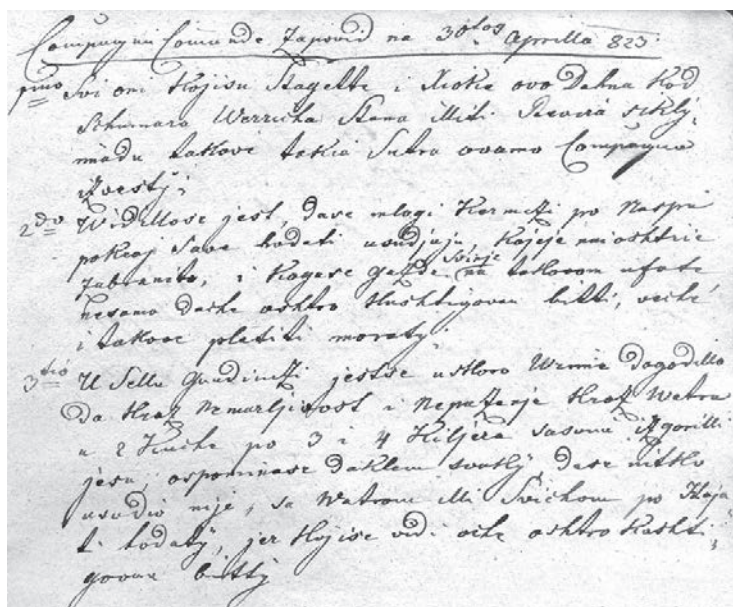 Compagnie Comande Zapovid na 30tog Aprilla 823
pmo Svi oni Kojisu Stagelte i ovo Dahna Kod
Schumara Werricha Stana illi
niadu takove takia Sutra ovamo Compagnie
izvesty;
2do Widillose jest, dase mlogi Kermetzi po Naspu
pokraj Save hodati usudjuju Kojeje naioshtrie
zabranito, i Kogase gazde svinje na takovom ufate
nesamo dache oshtro Kushtigovan bitti, veché
i takove platiti moraty.
3tio U Sellu Gundinczi jestse uskoro Wrime dogodillo
da kroz Nemarljivost i Nepazenje Kroz Watru
u 2 Kuche po 3 i 4 Kiljéra sasvim izgorilli
jesu, ospominase daklem svaky, dase nitko
usudio nije, sa Watrom illi Svichom po Staja
ti hodaty, jer Kojise vidi oche oshtro Kashti
govan bitty